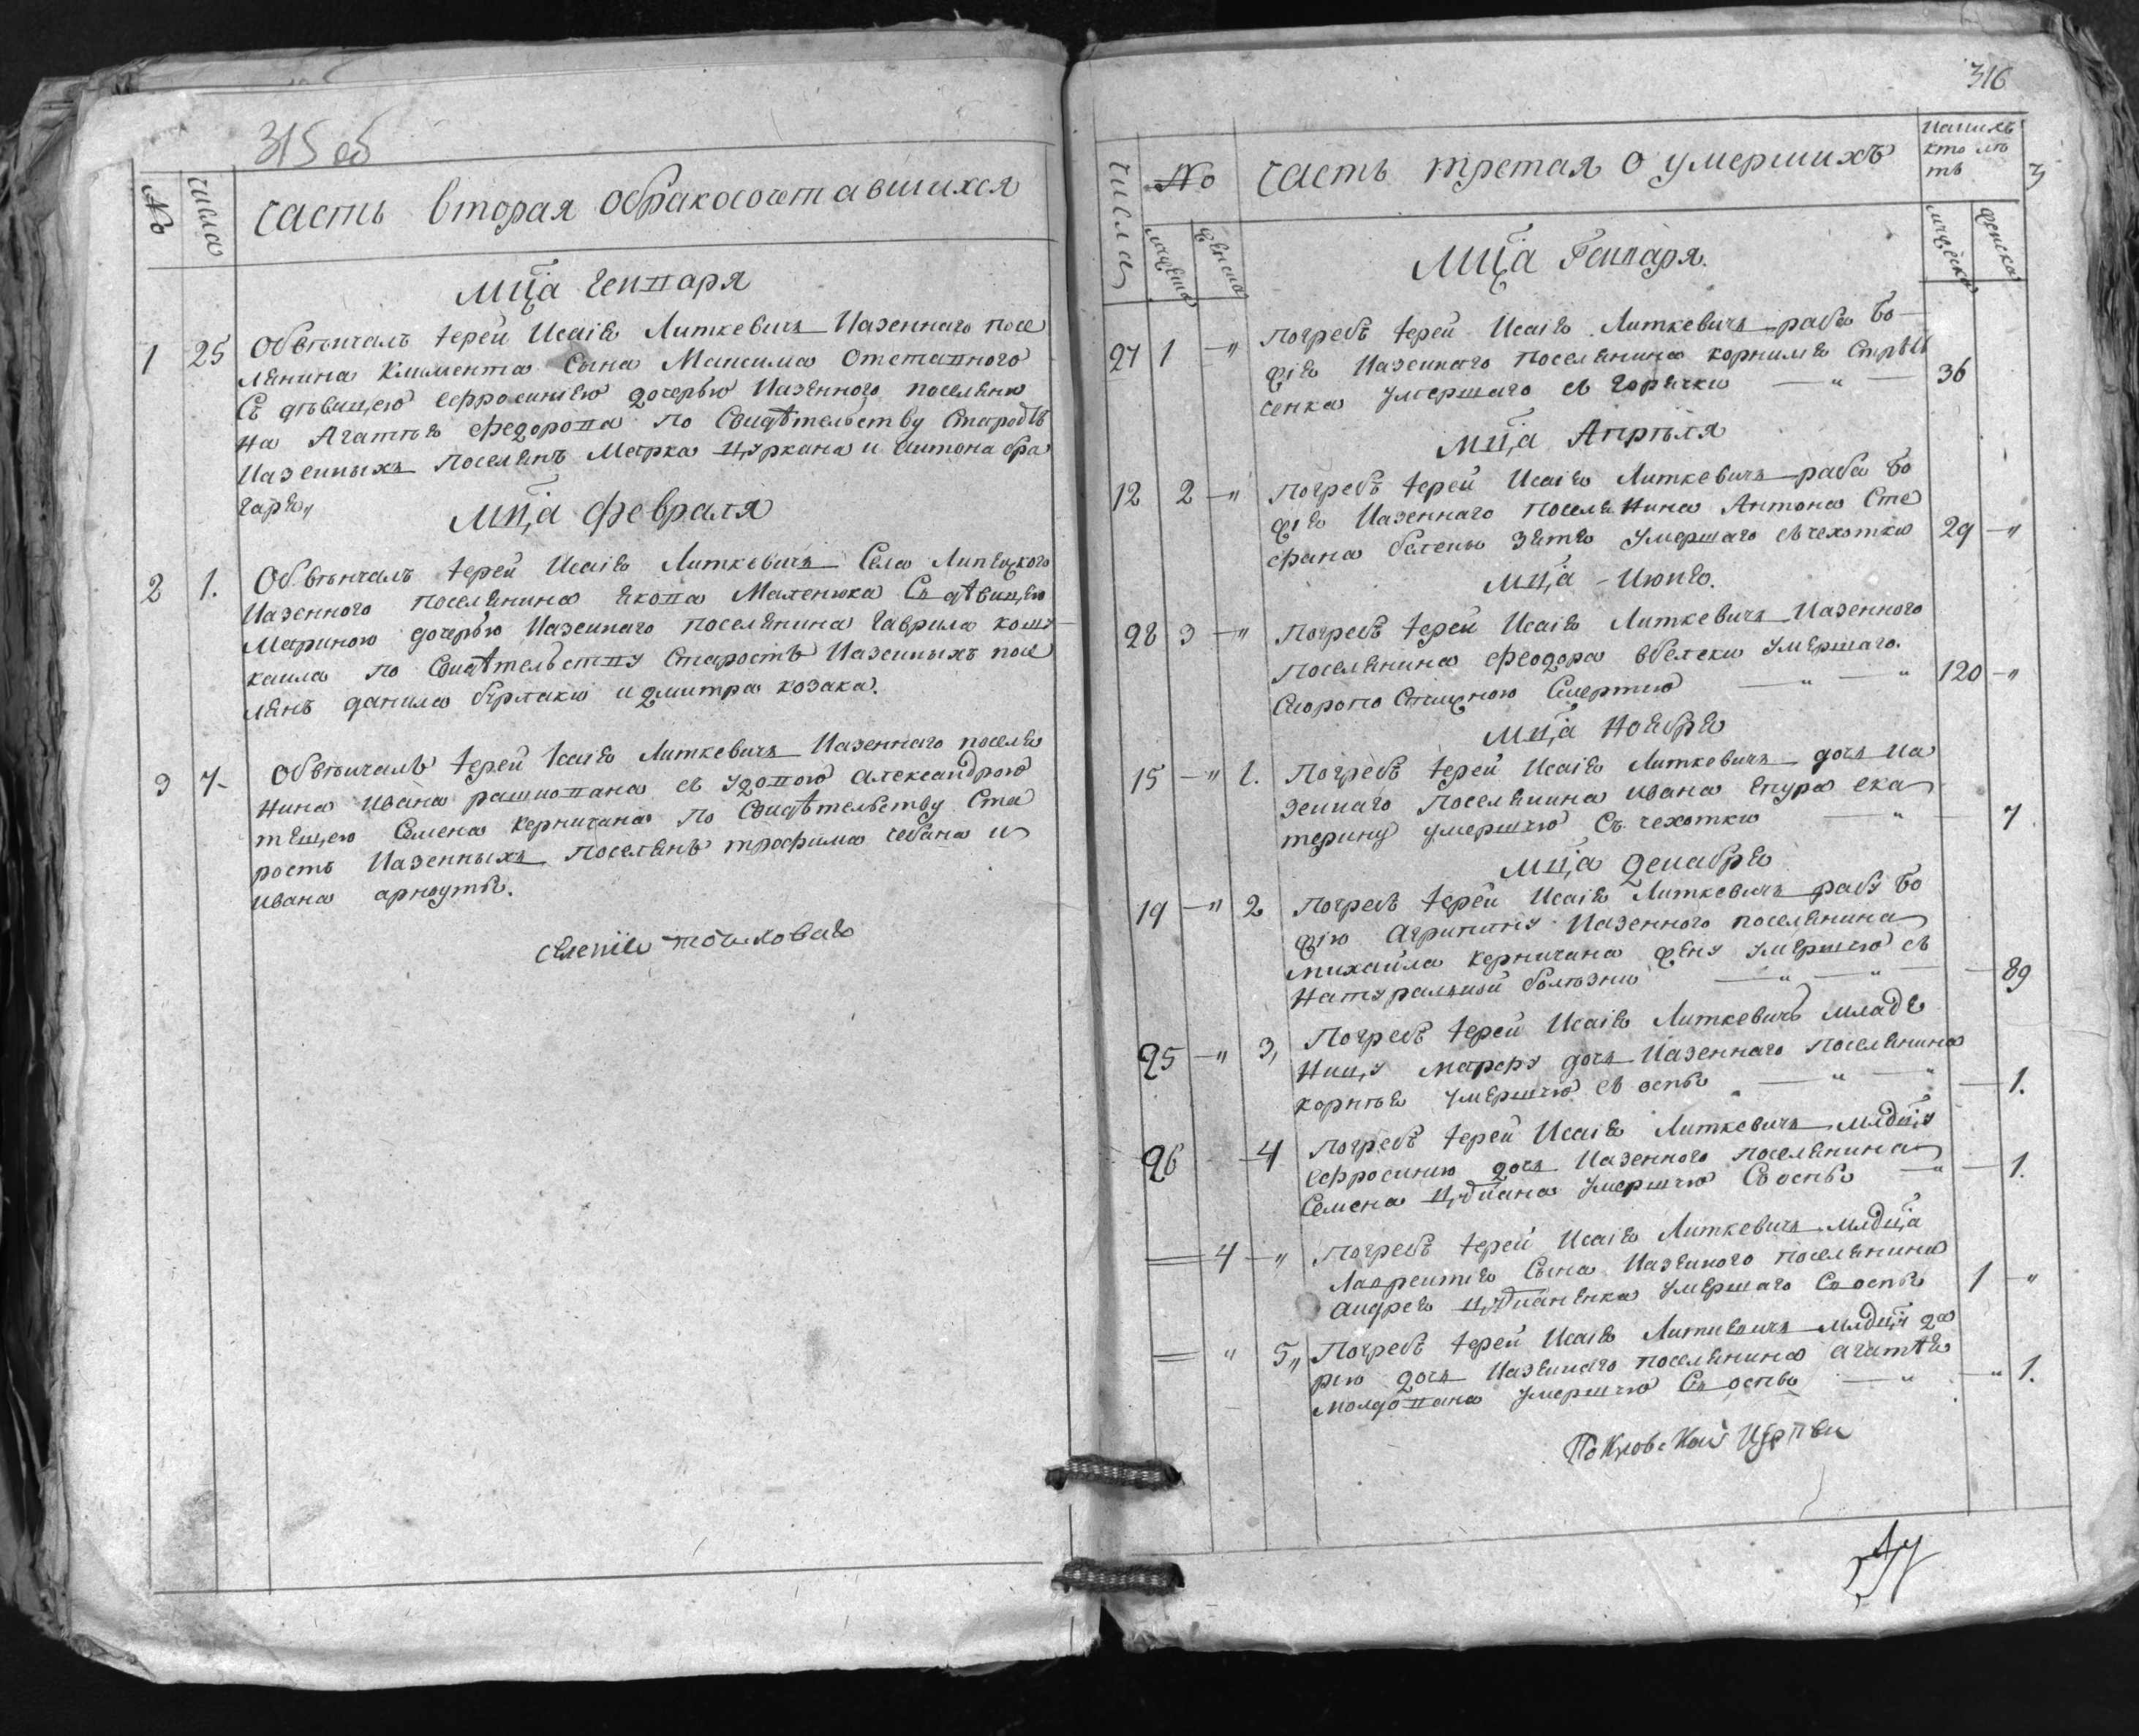 315 об
№ числа часть вторая обракосочетавшихся
мц̃а генваря
1 25 Обвѣнчалъ іерей Исаія Литкевичъ казенного посе
лянина Климента сына Максима
съ дѣвицею Ефросиниею дочерью казенного поселяни
на Агатия Федорова по свидѣтельству старостѣ
казенныхъ поселянъ Марка Цуркана и Антона бра
гаря
мц̃а февраля
2 1. Обвѣнчалъ іерей Исаія Литкевичъ села Липецкого
казенного поселянина Якова Маленюка съ дѣвицею
Мариною дочерью казенного поселянина Гаврила
по свидѣтельству старостѣ казенныхъ посе
лянъ данила бурлаки и дмитра козака.
3 7 Обвѣнчалъ іерей Ісаія Литкевичъ казенного поселя
нина Ивана рашкована съ удовою Александрою
Семена Керничана по свидѣтельству ста
ростѣ казенныхъ поселянъ трофима чебана и
Ивана арнаута.
селенія
316
числа № часть третая о умершихъ
мужеска женска
мц̃а Генваря.
27 1 —" погребъ іерей Исаія Литкевичъ раба Бо
жія казенного поселянина корнилія
сенка умершаго съ горячки —"— 36
мц̃а Апрѣля
12 2 —" погребъ іерей Исаія Литкевичъ раба Бо
жія казенного поселянина Антона Сте
фана зятя умершаго съ чехотки 29 —"
мц̃а Июня.
28 3 —" Погребъ іерей Исаія Литкевичъ казенного
поселянина Феодора умершаго.
скоропостижною смертию —"—" 120 —"
мц̃а Ноября
15 —" 1. Погребъ іерей Исаія Литкевичъ дочь ка
зенного поселянина Ивана Епура Ека
терину умершую съ чехотки —" 7
мц̃а декабря
19 —" 2 погребъ іерей Исаія Литкевичъ рабу Бо
жію Агрипину казенного поселянина
михаила керничана жену умершую съ
натуральной болѣзни —"—"— 89
25 —" 3, Погребъ іерей Исаія Литкевичъ младе
ницу марфу дочь казенного поселянина
корнѣя умершую съ оспы —"—" 1.
26 —4 Погребъ іерей Исаія Литкевичъ млдцу
Ефросинию дочь казенного поселянина
Семена умершую съ оспы —"— 1.
= 4 —" погребъ іерей Исаія Литкевичъ млдца
Лаврентия сына казенного поселянина
Андрея умершаго съ оспы 1 "
= " 5" Погребъ іерей Исаія Литкевичъ млдцу да
рию дочь казенного поселянина Агатѣя
молдована умершую съ оспы —" —" 1.
Покровской церкви